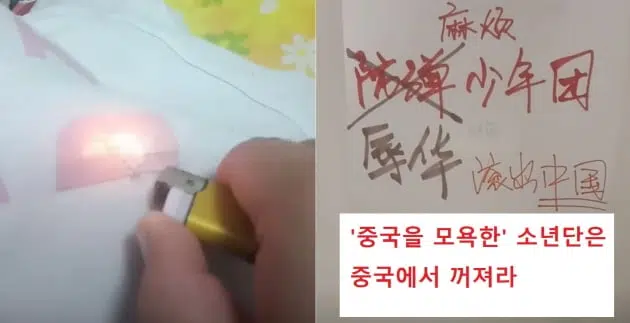 麻烦
防弹少年团
辱华 滚出中国
'중국을 모욕한' 소년단은
중국에서 꺼져라